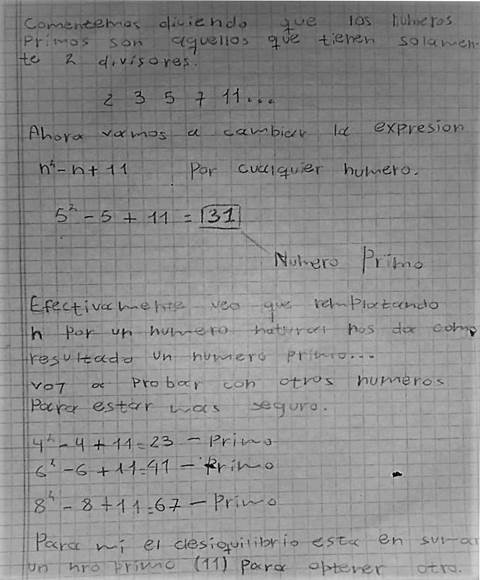 Comencemos diciendo que los numeros
Primos son aquellos que tienen solamen-
te 2 divisores.
2 3 5 7 11...
Ahora vamos a cambiar la expresion
n²-n+11 Por cualquier numero.
5² - 5 + 11 = 31
Numero Primo
Efectivamente veo que remplazando
n por un numero natural nos da como
resultado un numero primo...
voy a probar con otros numeros
Para estar mas seguro.
4² - 4 + 11 = 23 - Primo
6² - 6 + 11 = 41 - Primo
8² - 8 + 11 = 67 - Primo
Para mi el desiquilibrio esta en sumar
un nro primo (11) Para obtener otro.